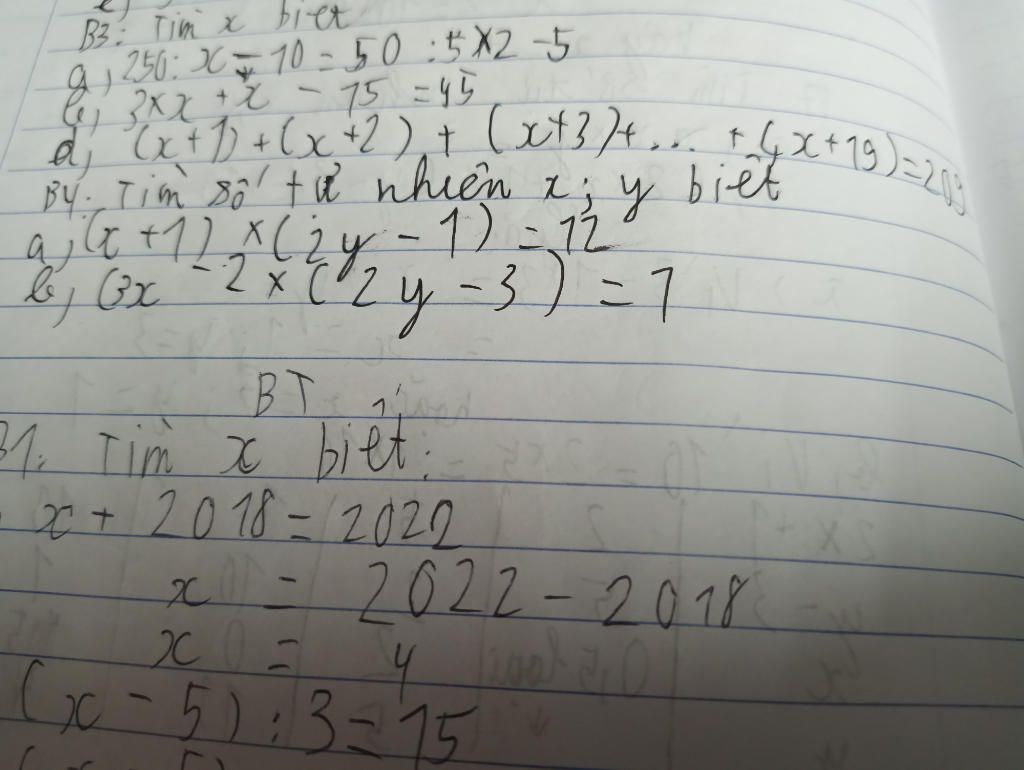 B3: Tìm x biết
a, 250: x - 10 = 50 : 5 × 2 - 5
b, 3 × x + x - 15 = 45
d, (x+1) + (x+2) + (x+3) + ... + (x+19) = 209
B4: Tìm số tự nhiên x; y biết
a, (x+1) × (2y - 1) = 12
b, (3x - 2 × (2y - 3) = 1
BT
B1: Tìm x biết:
x + 2018 = 2022
x = 2022 - 2018
x = 4
(x - 5) : 3 = 15